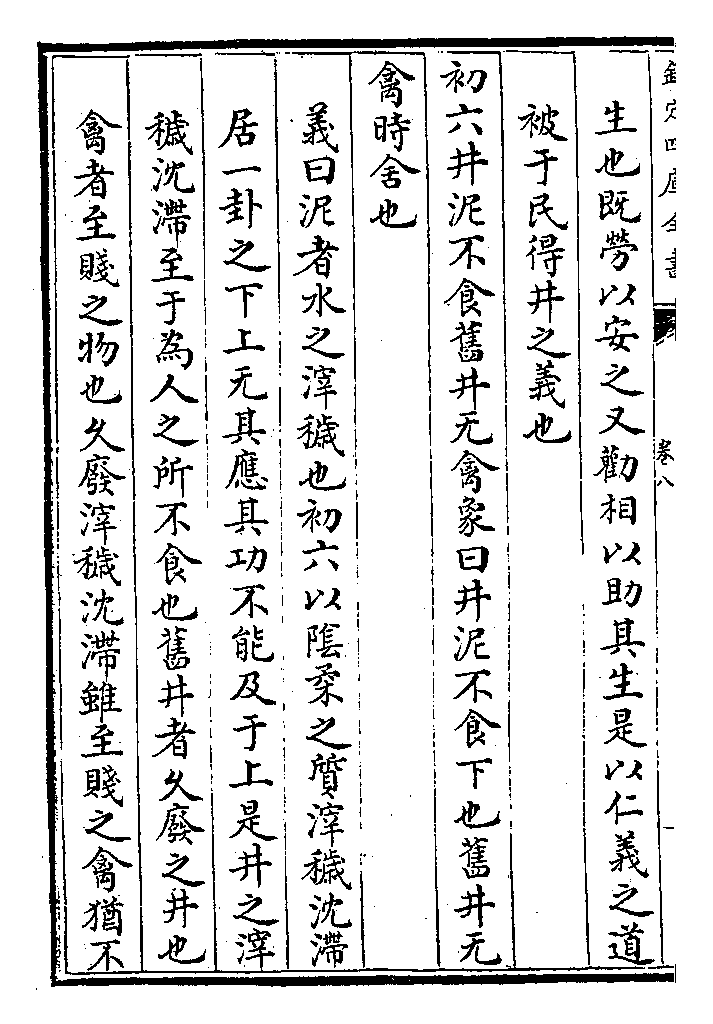 欽定四庫全書
卷八
生也既勞以安之又勸相以助其生是以仁義之道
被于民得井之義也
初六井泥不食舊井无禽象曰井泥不食下也舊井无
禽時舍也
義曰泥者水之滓穢也初六以隂柔之質滓穢沈滯
居一卦之下上无其應其功不能及于上是井之滓
穢沈滯至于為人之所不食也舊井者乆廢之井也
禽者至賤之物也乆廢滓穢沈滯雖至賤之禽猶不